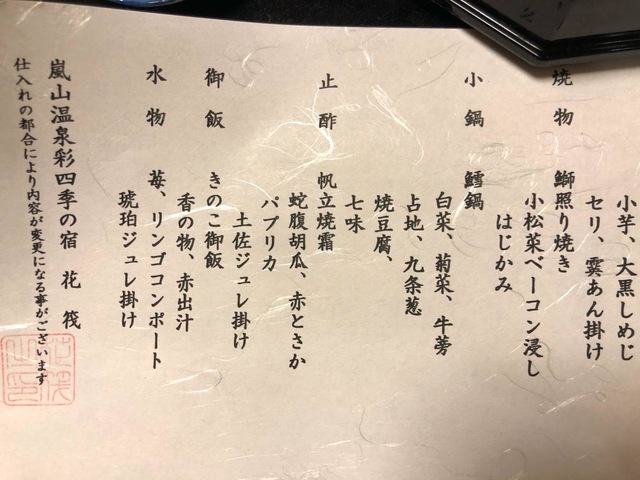 小芋、大黒しめじ
セリ、雲あん掛け
焼物 鰤照り焼き
小松菜ベーコン浸し
はじかみ
小鍋 鱈鍋
白菜、菊菜、牛蒡
占地、九条葱
焼豆腐、
七味
止酢 帆立焼霜
蛇腹胡瓜、赤とさか
パプリカ
土佐ジュレ掛け
御飯 きのこ御飯
香の物、赤出汁
水物 苺、リンゴコンポート
琥珀ジュレ掛け
嵐山温泉彩四季の宿 花筏
仕入れの都合により内容が変更になる事がございます